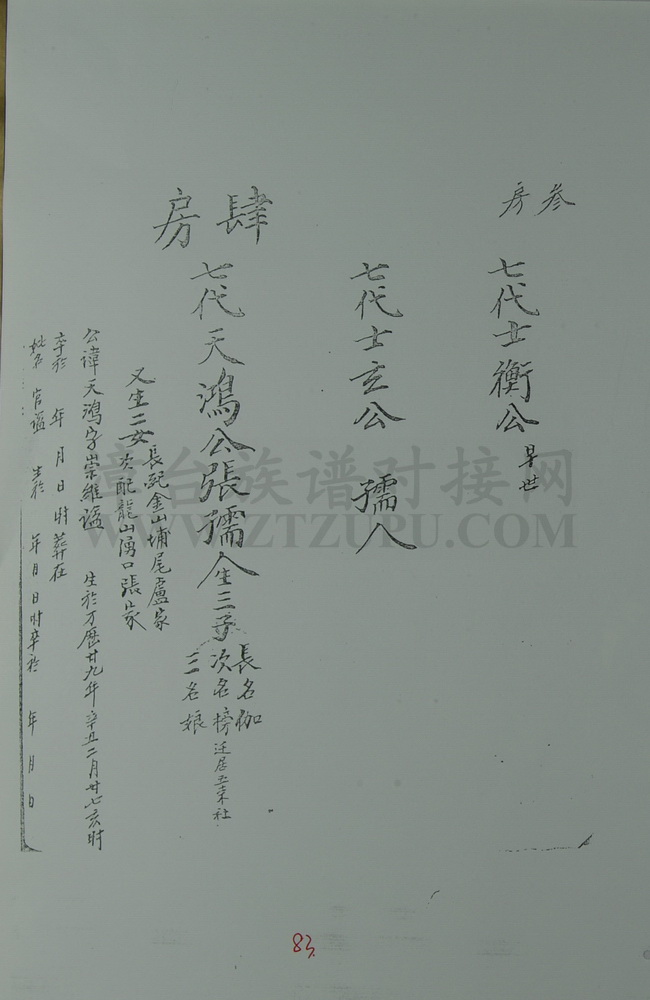 叁房
七代士衡公 早世
七代士玄公 孺人
肆房
七代天鴻公張孺人生三子
長名伽
次名榜迁居五来社
三名娘
又生二女
長配金山埔尾盧家
次配龍山湧口張家
公諱天鴻字崇維謚 生於万歷廿九年辛丑二月廿七亥時
卒於 年 月 日 时葬在
妣名 官謚 生於 年 月 日时卒於 年 月 日
漳台族谱对接网
WWW.ZTZUPU.COM
83